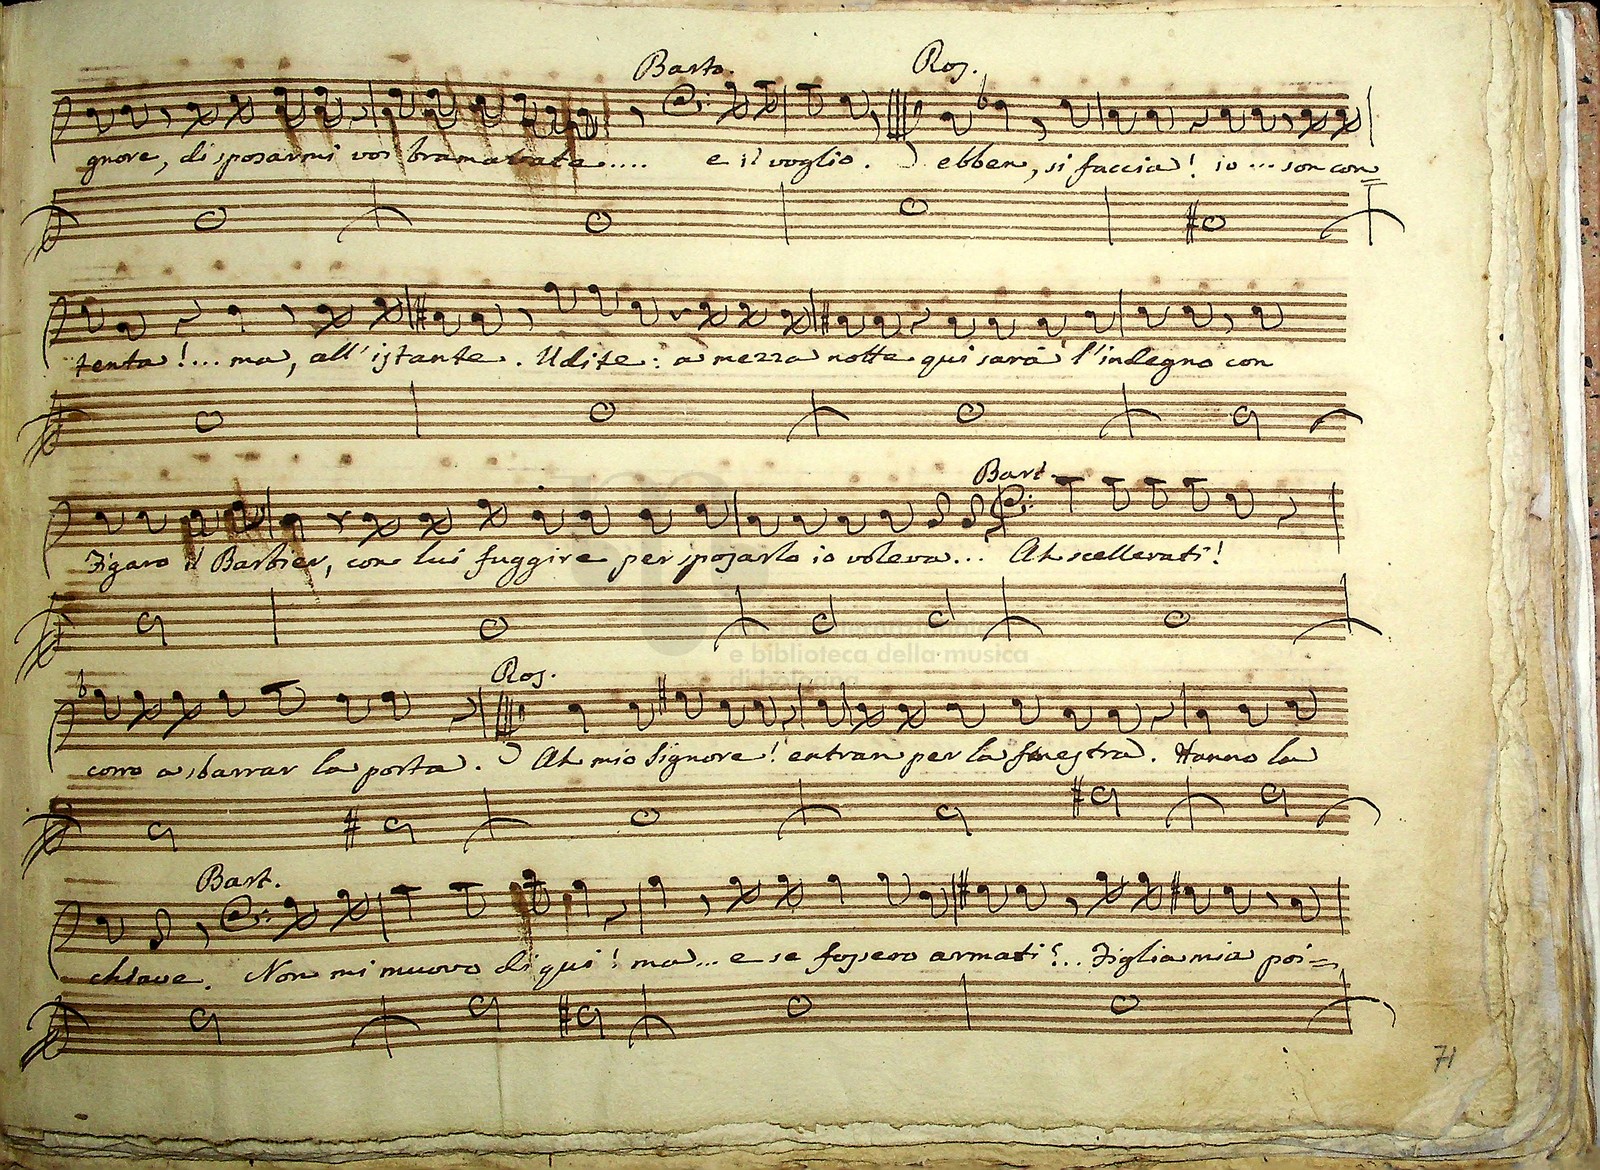 Barto. Ros.
gnore, di sposarmi voi bramavate.... e il voglio. ebben, si faccia! io ... son con=
tenta!... ma, all'istante. Udite: a mezza notte qui sarà l'indegno con
Bart.
Figaro il Barbier, con lui fuggire per sposarlo io voleva... Ah scellerati!
e biblioteca della musica
Ros.
corro a sbarrar la porta. Ah mio Signore! entran per la finestra. Hanno la
Bart.
chiave. Non mi muovo di qui! ma... e se fossero armati?.. Figlia mia poi=
71